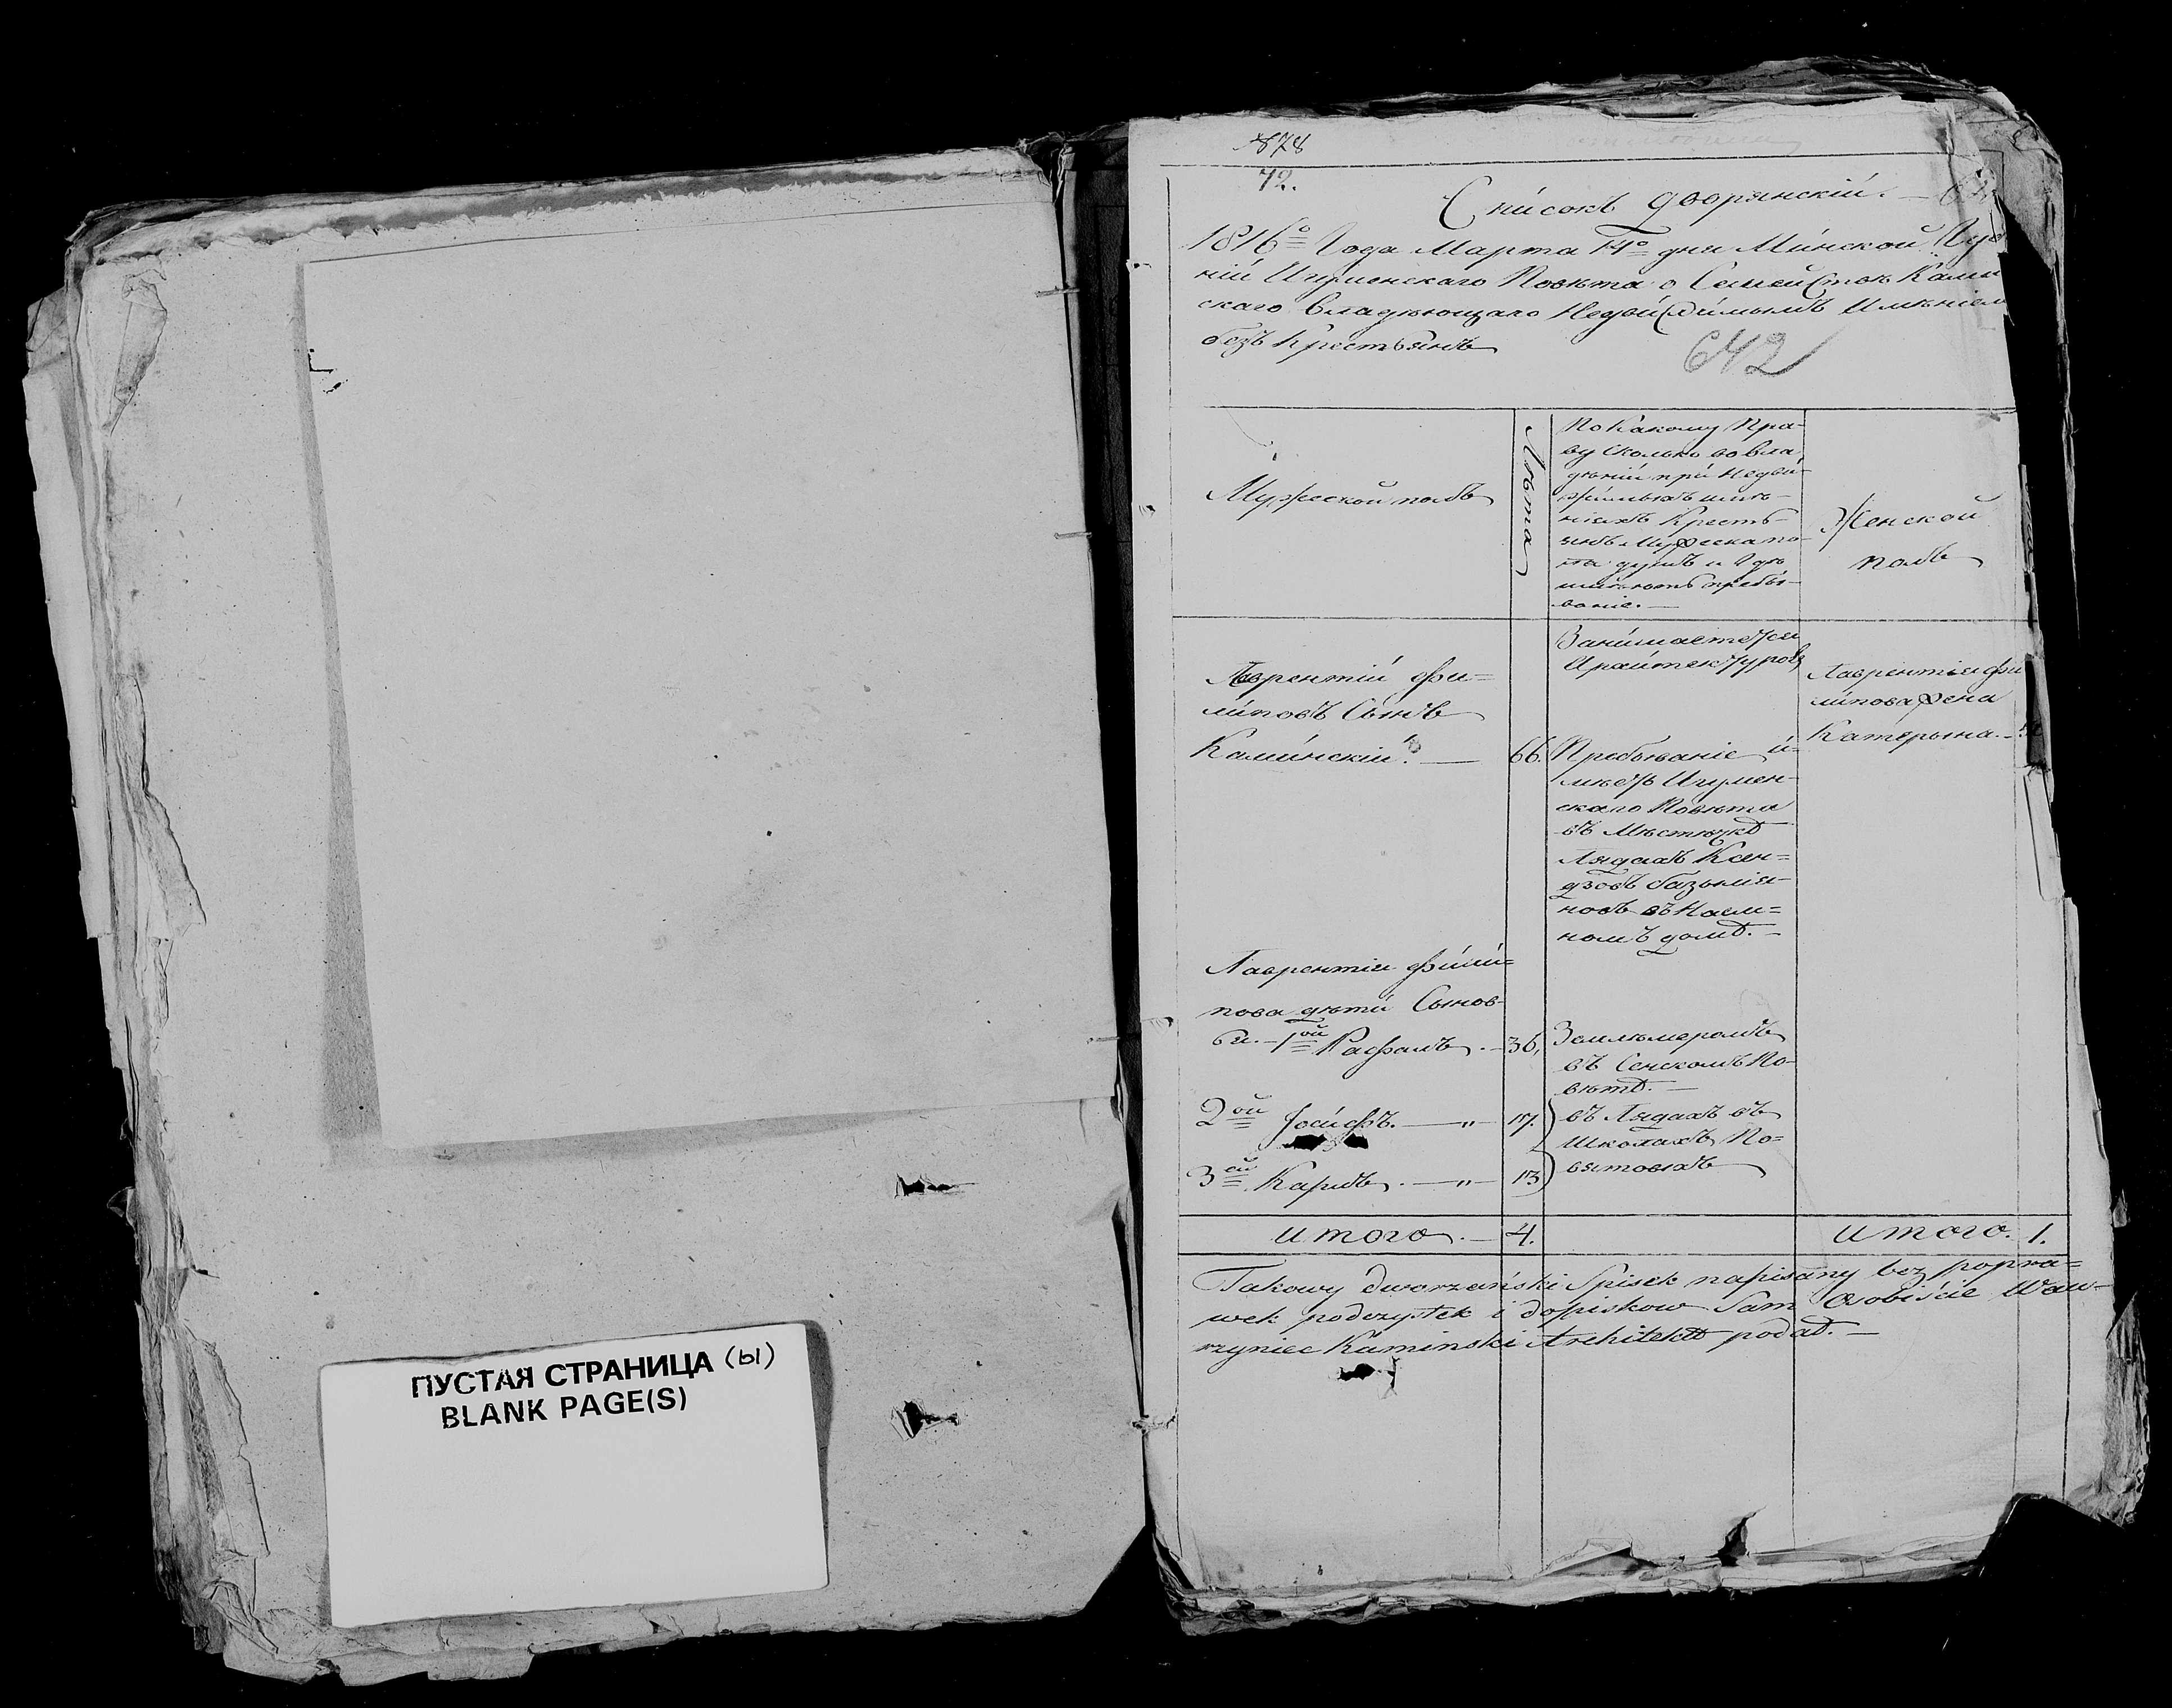 ПУСТАЯ СТРАНИЦА (ы)
BLANK PAGE(S)
878
72.
Список дворянский.
1816го Года Марта 14го дня Минской Губ
нии Игуменскаго Повѣта о Семействѣ Камин
скаго владѣющаго Недвижимымъ Имѣнием
безъ Крестьянъ
642
Мужеской полъ
Лѣта
По Какому Пра-
ву Сколько во вла
дѣнии при Недви-
жимыхъ имѣ-
нияхъ Кресть-
янъ Мужеска по-
ла душъ и Где
имѣютъ пребы-
вание.
Женской
полъ
Лаврентий Фи=
липовъ Сынъ
Каминский. 66.
Занимается
Архитектурой
Пребывание и-
мѣетъ Игумен-
скаго Повѣта
въ Мѣстечкѣ
Лядахъ Ксен=
дзовъ базылия-
новъ въ Наем=
номъ домѣ.
Лаврентия Фи
липова жена
Катерына.
Лаврентия Фили=
пова дѣти Сынов-
ьи. 1ой Рафалъ. 36.
Землемеромъ
въ Сенскомъ По-
вѣтѣ.
2ой Іосифъ. — „ — 17.
въ Лядахъ въ
Школахъ По=
вятовыхъ
3ей Кароль. — „ — 13
итого. 4.
итого. 1.
Takowy dworzański Spisek napisany bez popra=
wek podczystek i dopiskow Sam Osobiście Waw-
rzyniec Kaminski Architekt podał.